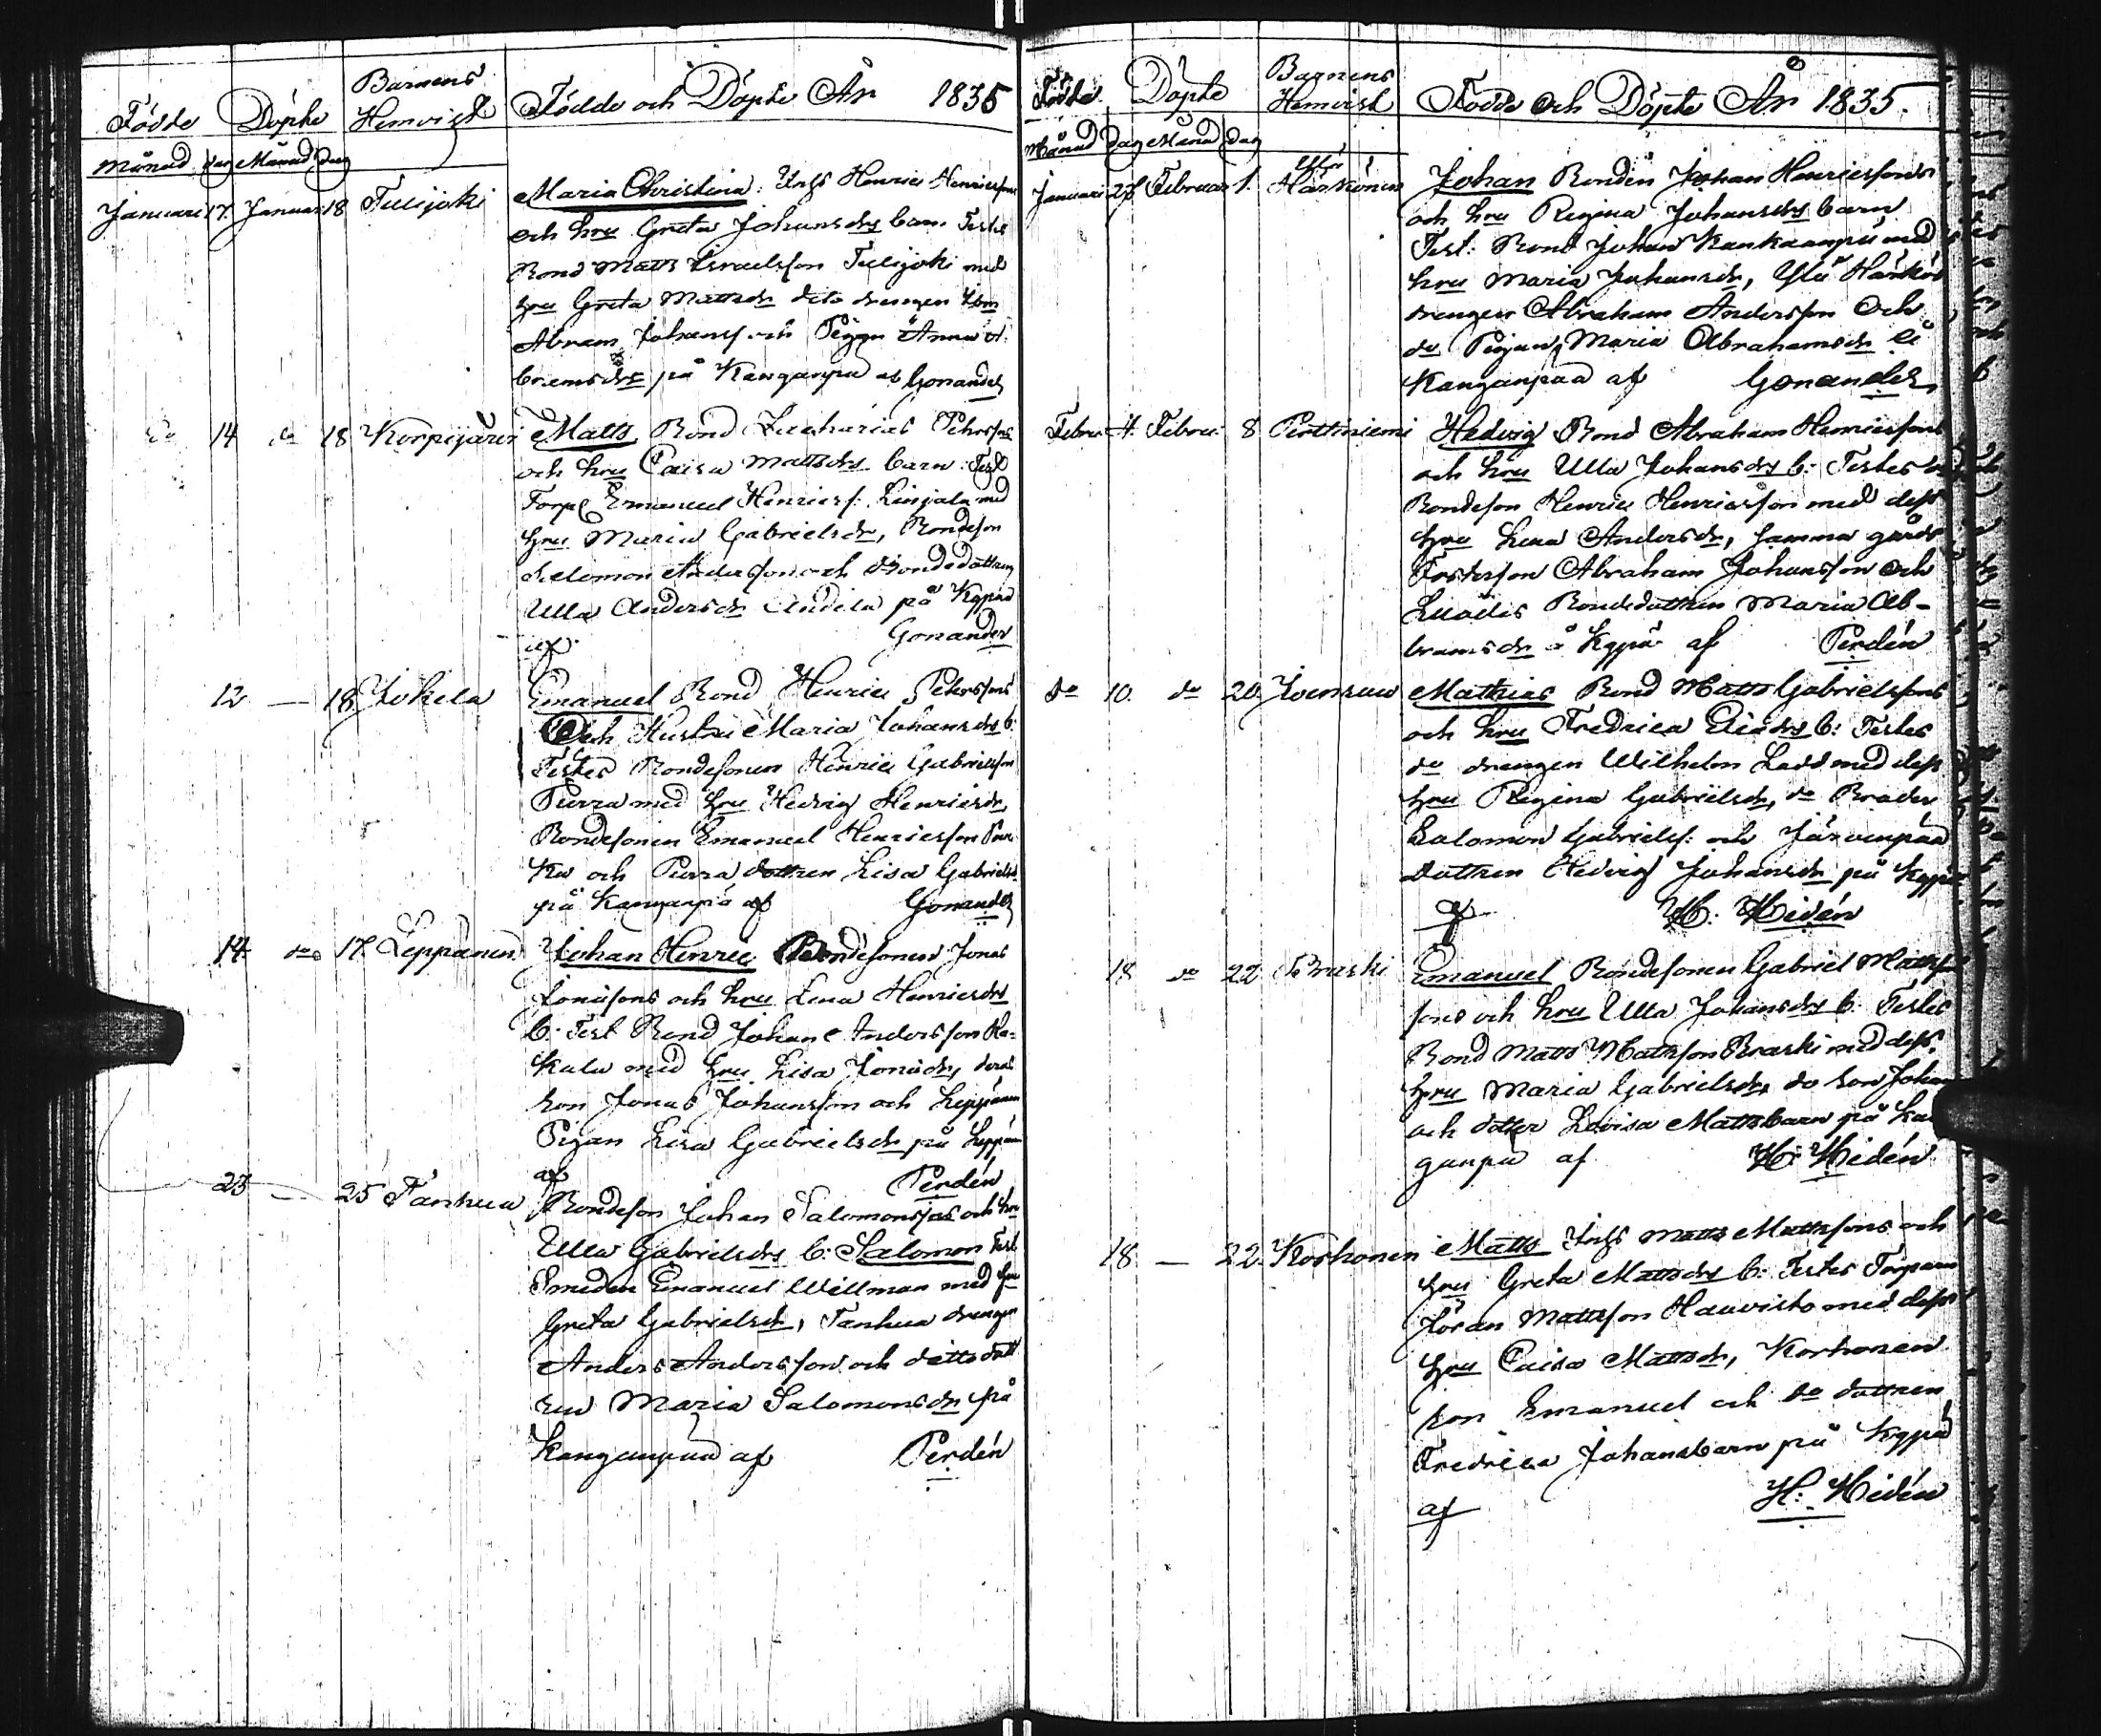 Födde Döpte Barnens Hemvist Födde och Döpte År 1835
Månad dag Månad dag
Januari 17. Januari 18 Tulijoki Maria Christina: Inhs Henric Henricssons
och hru Greta Johansdrs barn. Testes
Bond Matts Israelsson Tulijoki med
hru Greta Mattsdr dito drengen
Abram Johanss. och Pigan Anna A-
bramsdr på Kanganpää af Gonander
do 14 do 18 Korpijärvi Matts Bond Zacharias Pehrssons
och hru Caisa Mattsdrs barn: Test
Torp Emanuel Henricss: Linjala med
hru Maria Gabrielsdr, Bondeson
Salomon Andersson och Bondedottren
Ulla Andersdr Andela på Kgpää
af Gonander
12 — 18 Jokela Emanuel Bond Henric Pehrssons
Och Hustru Maria Johansdrs b:
Testes Bondesonen Henric Gabrielsson
Purra med hru Hedvig Henricsdr,
Bondesonen Emanuel Henricsson
och Purra dottren Lisa Gabrielsd.
på Kanganpä af Gonander
14 do 17. Leppänen Johan Henric Bondesonen Jonas
Jonaesons och hru Lena Henricsdrs
b: Test Bond Johan Andersson Ka-
kula med hru Lisa Jonaedr, deras
son Jonas Johansson och Leppänen
Pigan Lisa Gabrielsdr på Leppänen
af Perdén
23 — 25 Tanhua Bondeson Johan Salomonssons och hru
Ulla Gabrielsdrs b: Salomon Test
Smeden Emanuel Willman med hru
Greta Gabrielsdr, Tanhua drengen
Anders Andersson och ditto dott
ren Maria Salomonsdr på
Kanganpää af Perdén
Födde Döpte Barnens Hemvist Födde Och Döpte År 1835.
Månad dag Månad dag
Januari 28 Februari 1. Ylä Härkönen Johan Bonden Johan Henricssons
och hru Regina Johansdrs barn
Test: Bond Johan Kankaanpä med
hru Maria Johansdr, Ylä Härkön
drengen Abraham Andersson Och
do Pigan Maria Abrahamsdr å
Kanganpää af Gonander
Febru. 4. Febru. 8 Perttiniemi Hedvig Bond Abraham Henricssons
och hru Ulla Johansdrs b: Testes
Bondeson Henric Henricsson med dess
hru Lena Andersdr, samma gårds
Fosterson Abraham Johansson och
Bondedottren Maria Ab-
bramsdr å Kgpä af Perdén
do 10. do 20 Joensuu Mathias Bond Matts Gabrielssons
och hru Fredrica Eliædrs b: Testes
do drengen Wilhelm Ladd med dess
hru Regina Gabrielsdr, do Broder
Salomon Gabrielss: och Järvenpää
dottren Hedvig Johansdr på Kgpä
af H: Hidén
18 do 22 Braski Emanuel Bondesonen Gabriel Matts
sons och hru Ulla Johansdrs b: Testes
Bond Matts Mattsson Braski med dess
hru Maria Gabrielsdr, do son Johan
och dotter Lovisa Mattsbarn på Kan
ganpä af H: Hidén
18 — 22. Korhonen Matts Inhs Matts Mattssons och
hru Greta Mattsdrs b: Testes Torparen
Jöran Mattsson Haavisto med dess
hru Caisa Mattsdr, Korhonen
son Emanuel och do dottren
Fredrica Johansbarn på Kgpä
af H: Hidén